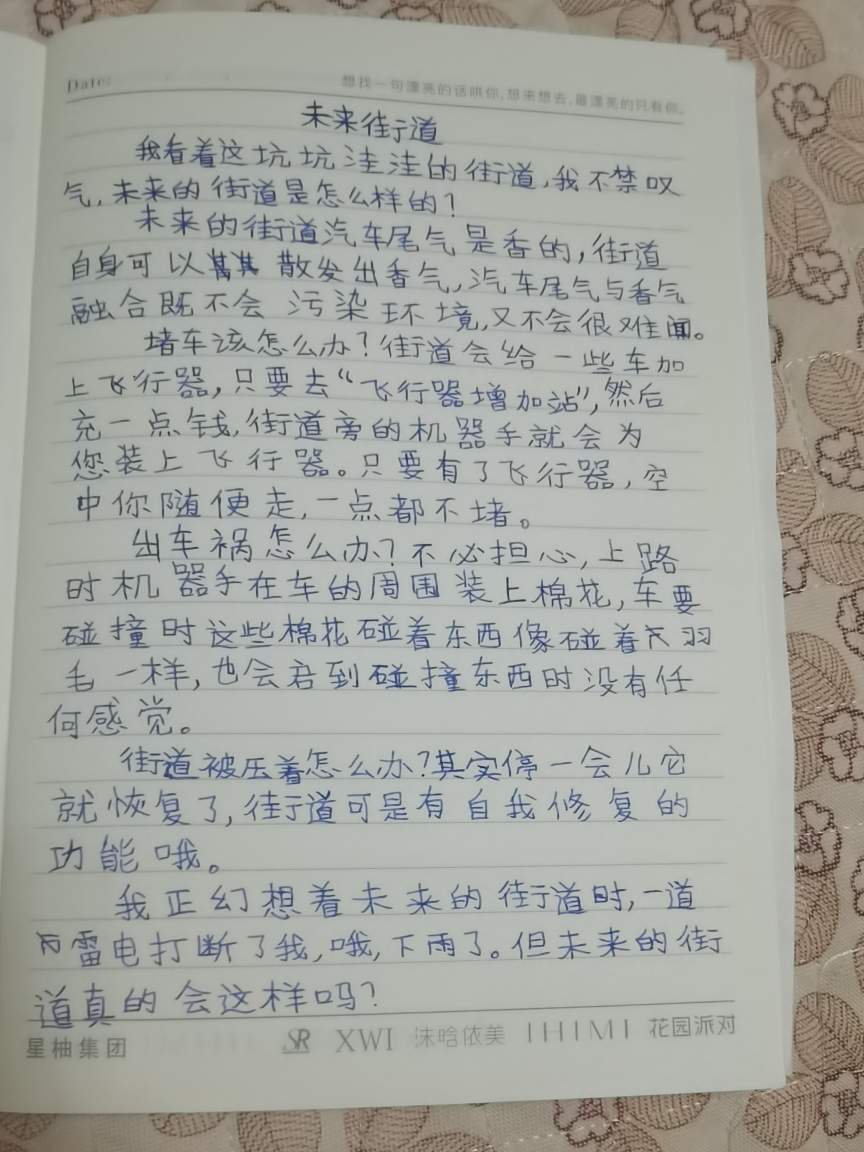 Date:
想找一句漂亮的话哄你,想来想去,最漂亮的只有你。
未来街道
我看着这坑坑洼洼的街道,我不禁叹
气,未来的街道是怎么样的?
未来的街道汽车尾气是香的,街道
自身可以散发出香气,汽车尾气与香气
融合既不会污染环境,又不会很难闻。
堵车该怎么办?街道会给一些车加
上飞行器,只要去“飞行器增加站”,然后
充一点钱,街道旁的机器手就会为
您装上飞行器。只要有了飞行器,空
中你随便走,一点都不堵。
出车祸怎么办?不必担心,上路
时机器手在车的周围装上棉花,车要
碰撞时这些棉花碰着东西像碰着羽
毛一样,也会到碰撞东西时没有任
何感觉。
街道被压着怎么办?其实停一会儿它
就恢复了,街道可是有自我修复的
功能哦。
我正幻想着未来的街道时,一道
雷电打断了我,哦,下雨了。但未来的街
道真的会这样吗?
星柚集团 SR XWI 沫晗依美 IHIMI 花园派对